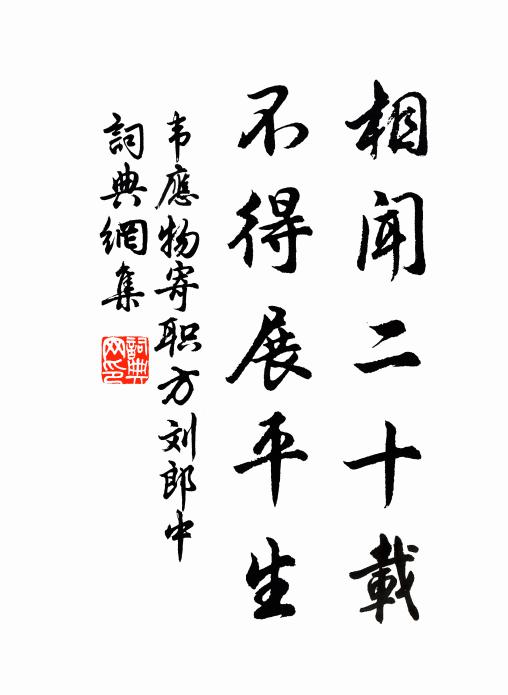 相闻二十載
不得展平生
韦應物寄职方刘郎中
詞典網集
詞典网印